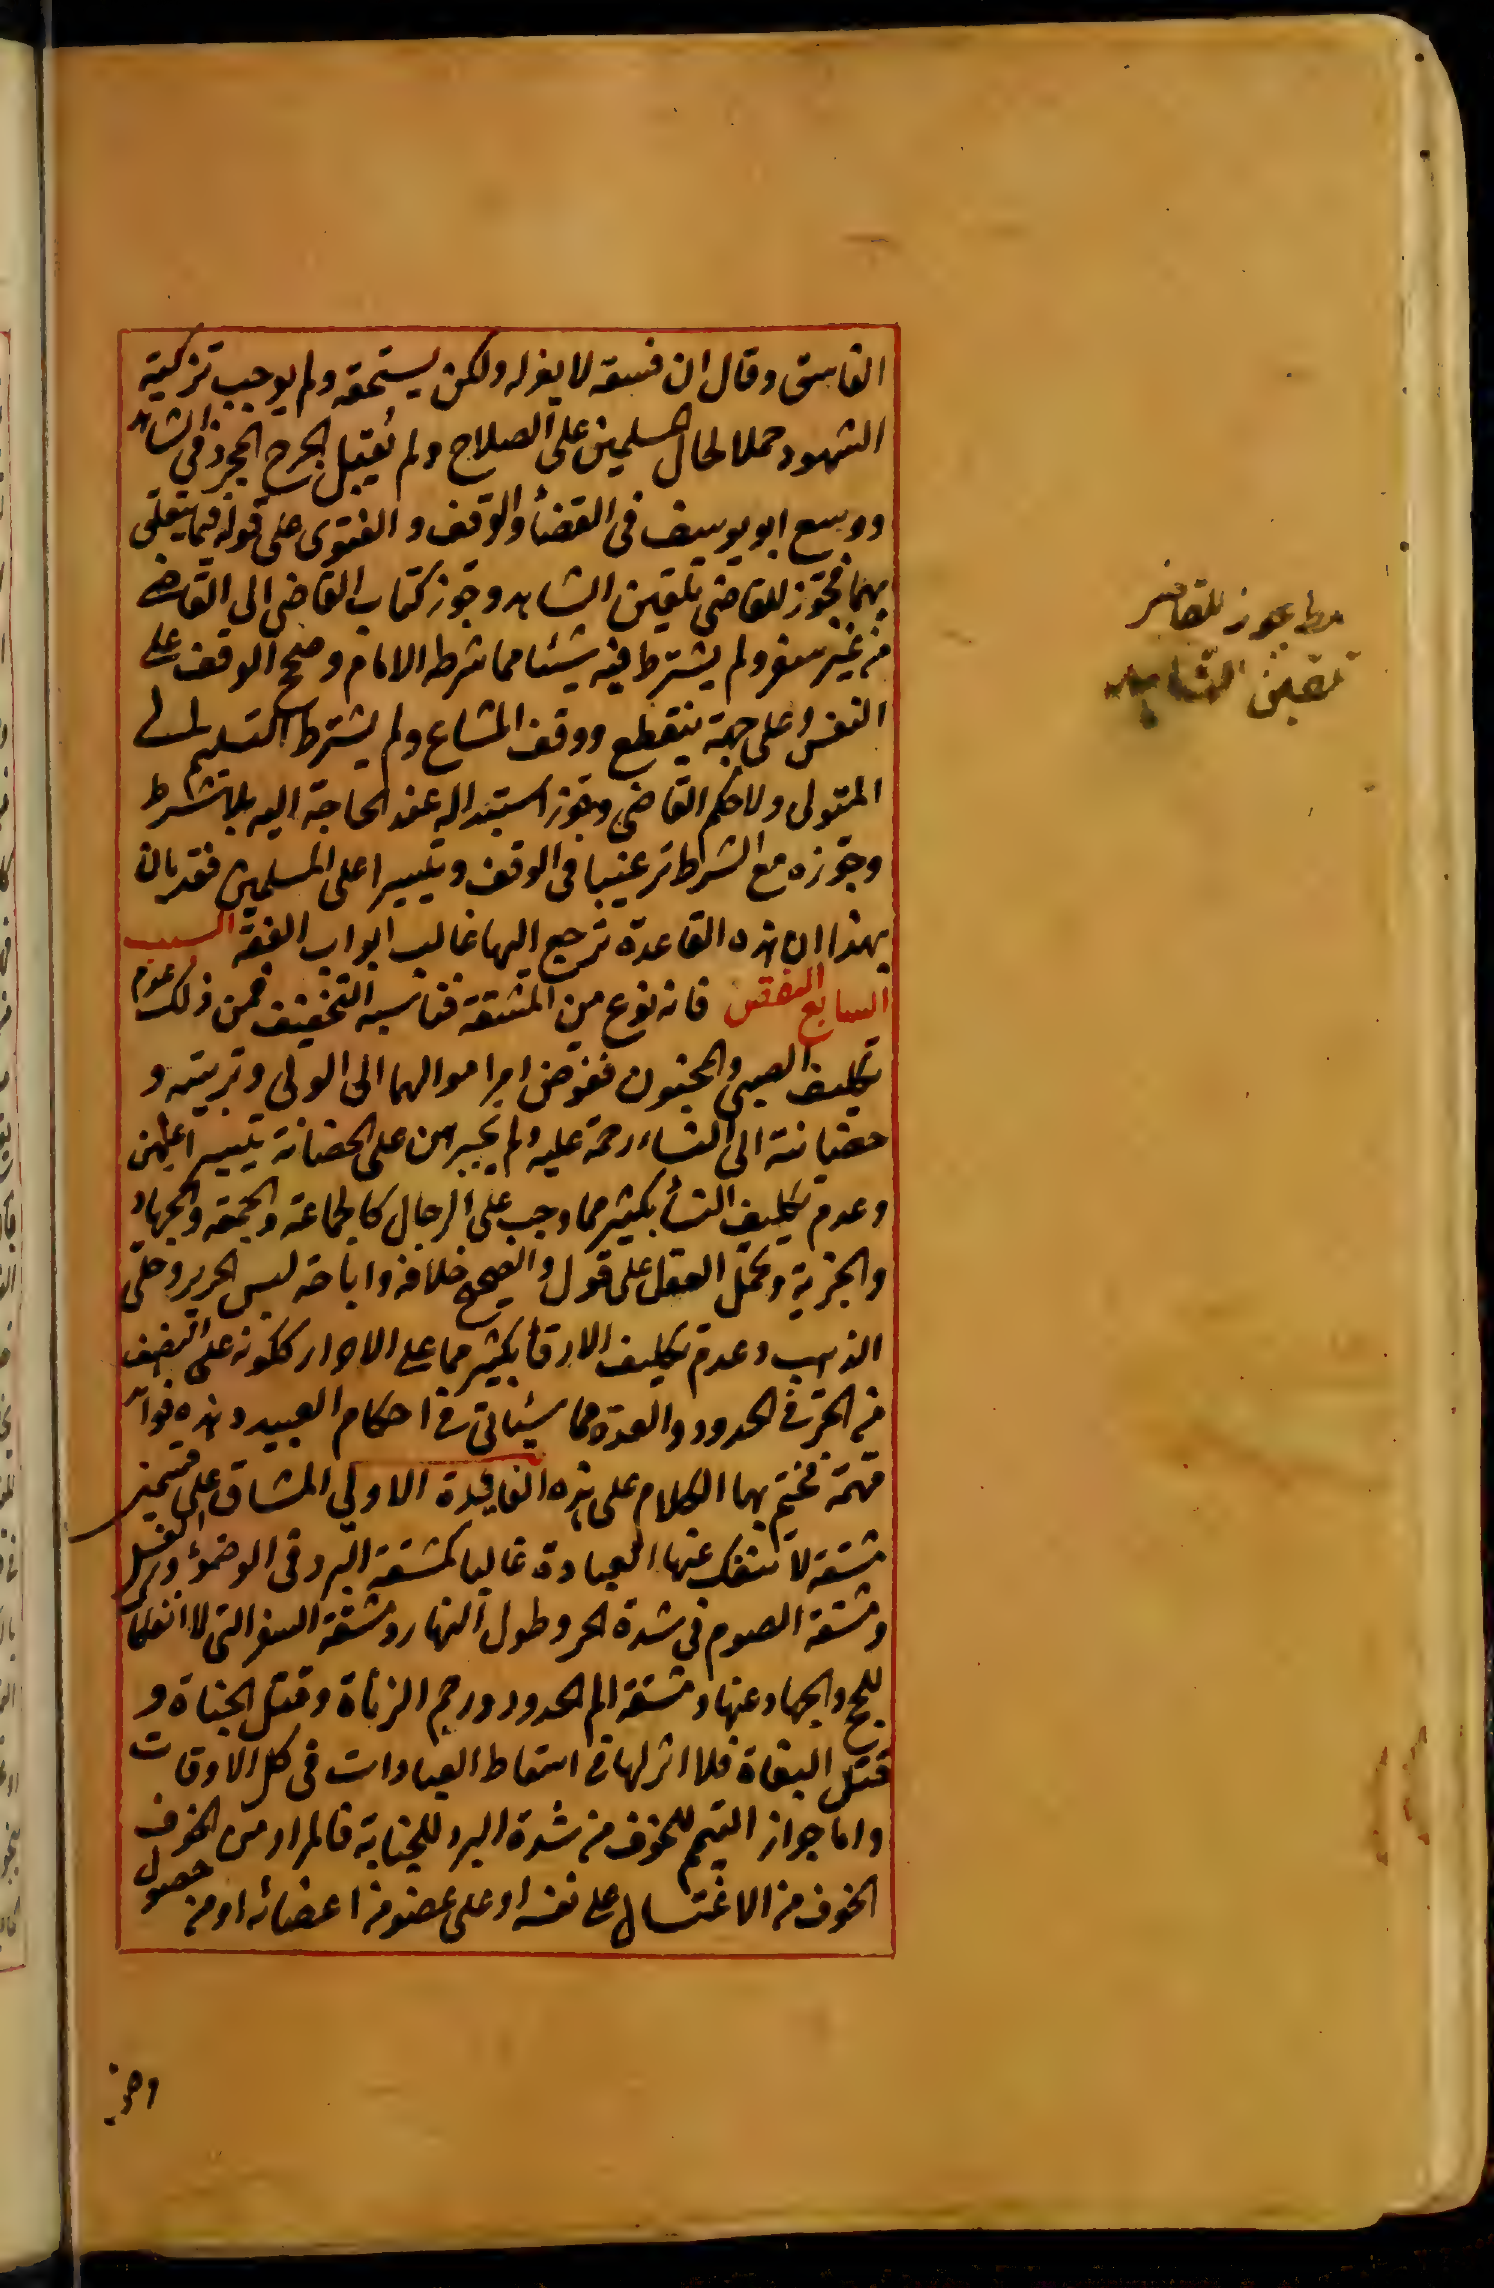 الفاسق وقال ان فسقه لا يعزله ولكن يستحقه ولم يوجب تزكية
الشهود حملا لحال المسلمين على الصلاح ولم يُقبل الجرح المجرد في الشاهد
ووسع ابو يوسف في القضأ والوقف و الفتوى على قوله فيما يتعلق
بهما فجّوز للقاضي تلقين الشاهد وجّوز كتاب القاضي الى القاضي
من غير سفر ولم يشترط فيه شيئا مما شرطه الامام وصحح الوقف على
النفس وعلى جهة ينقطع ووقف المشاع ولم يشترط التسليم الى
المتولى ولا حكم القاضي وجّوز استبداله عند الحاجة اليه بلا شرط
وجّوزه مع الشرط ترغيبا في الوقف وتيسيرا على المسلمين فقد بان
بهذا ان هذه القاعدة ترجع اليها غالب ابواب الفقه السبب
السابع النقص فانه نوع من المشقة فناسبه التخفيف فمن ذلك عدم
تكليف الصبي والمجنون ففوّض امر اموالهما الى الولى وتربيته و
حضانته الى النساء رحمة عليه ولم يجبرهن على الحضانة تيسيرا عليهن
وعدم تكليف النسأ بكثير مما وجب على الرجال كالجماعة والجمعة والجهاد
والجزية وتحمّل العقل على قول والصحيح خلافه واباحة لبس الحرير وحلى
الذهب وعدم تكليف الارقأ بكثير مما على الاحرار ككونه على النصف
من الحرّ في الحدود والعدة مما سيئاتي في احكام العبيد وهذه فوائد
مهمّة نختم بها الكلام على هذه القاعدة الاولي المشاق على قسمين
مشقة لا تنفك عنها العبادة غالبا كمشقة البرد في الوضؤ والغسل
ومشقة الصوم في شدة الحر وطول النهار ومشقة السفر التي لا انفكاك
للحج والجهاد عنها ومشقة الم الحدود ورجم الزناة وقتل الجناة و
قتل البغاة فلا اثر لها في اسقاط العبادات في كل الاوقات
واما جواز التيمم للخوف من شدة البرد للجنابة فالمراد من الخوف
الخوف من الاغتسال على نفسه او على عضو من اعضائه او من حصول
مط يجوز للقاضي
تلقين الشاهد